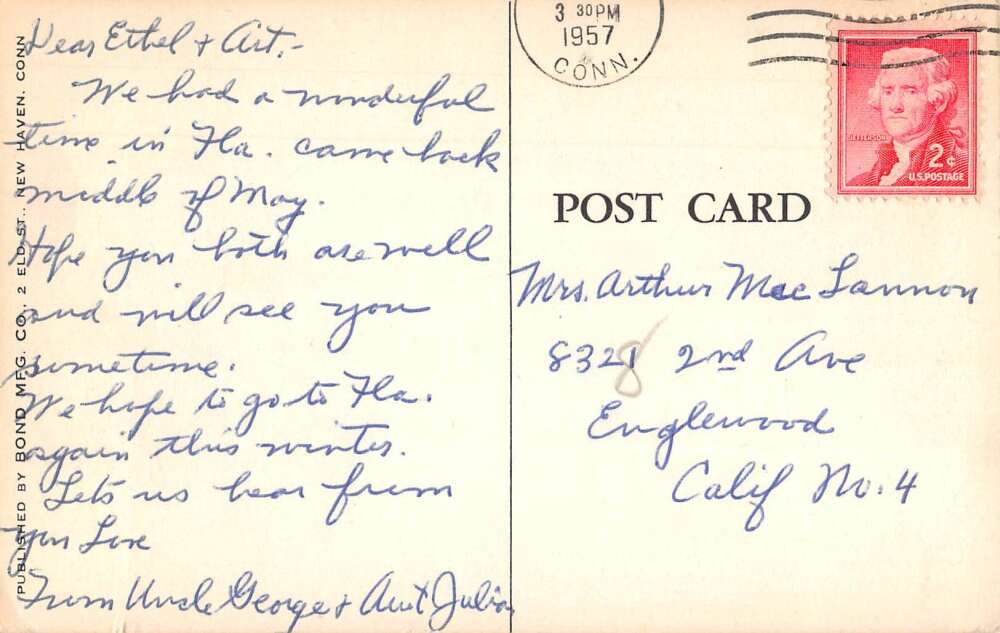 Dear Ethel + Art,-
We had a wonderful
time in Fla. came back
middle of May.
Hope you both are well
and will see you
sometime.
We hope to go to Fla.
again this winter.
Lets us hear from
you Love
From Uncle George + Aunt Julia
PUBLISHED BY BOND MFG. CO., 2 ELD ST., NEW HAVEN, CONN
3 30 PM
1957
CONN.
JEFFERSON
2¢
U.S. POSTAGE
POST CARD
Mrs. Arthur Mac Lannon
8321 2nd Ave
8
Englewood
Calif No. 4